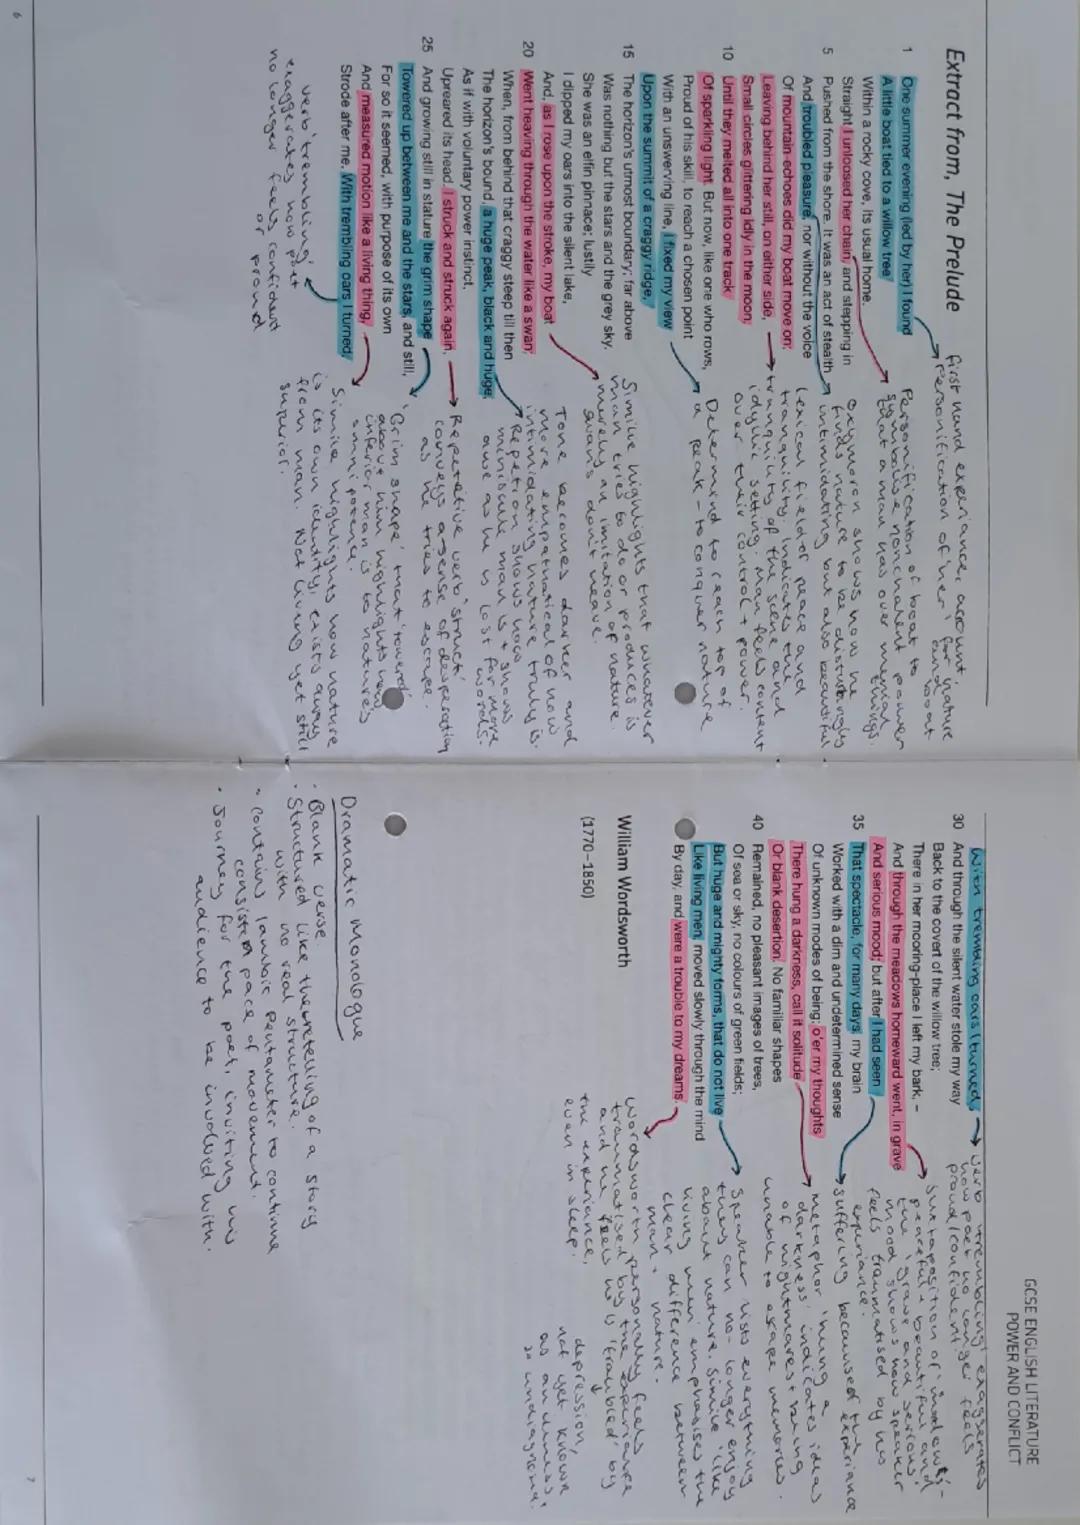 Extract from, The Prelude
first hand experiance, account,
Personification of 'her' for nature
and boat
1 One summer evening (led by her) I found
A little boat tied to a willow tree
Within a rocky cove, its usual home.
Straight I unloosed her chain, and stepping in
5 Pushed from the shore. It was an act of stealth
And troubled pleasure, nor without the voice
Of mountain-echoes did my boat move on;
Leaving behind her still, on either side,
Small circles glittering idly in the moon,
10 Until they melted all into one track
Of sparkling light. But now, like one who rows,
Proud of his skill, to reach a chosen point
With an unswerving line, I fixed my view
Upon the summit of a craggy ridge,
15 The horizon's utmost boundary; far above
Was nothing but the stars and the grey sky.
She was an elfin pinnace; lustily
I dipped my oars into the silent lake,
And, as I rose upon the stroke, my boat
20 Went heaving through the water like a swan;
When, from behind that craggy steep till then
The horizon's bound, a huge peak, black and huge,
As if with voluntary power instinct,
Upreared its head. I struck and struck again,
25 And growing still in stature the grim shape
Towered up between me and the stars, and still,
For so it seemed, with purpose of its own
And measured motion like a living thing,
Strode after me. With trembling oars I turned,
Personification of boat to
symbolise nonchalent power
that a man has over menial
things.
oxymoron shows how he
finds nature to be disturbingly
intimidating but also beautiful
Lexical field of peace and
tranquility. Indicates the
tranquility of the scene and
idyllic setting. Man feels content
over their control + power.
Determind to reach top of
a peak - to conquer nature
Simile highlights that whatever
man tries to do or produces is
merely an imitation of nature.
swans don't heave.
Tone becomes darker and
more empathatical of how
intimidating nature truly is.
Repetition shows how
miniscule man is + shows
awe as he is lost for more
words.
Repetative verb 'struck'
conveys a sense of desperation
as he tries to escape.
'Grim shape' that 'towered'
above him highlights how
inferior man is to natures
omnipotence.
Simile highlights how nature
is its own identity, exists away
from man. Not living yet still
superior.
verb 'trembling'
exaggerates how poet
no longer feels confident
or proud
6
GCSE ENGLISH LITERATURE
POWER AND CONFLICT
With trembling oars I turned,
30 And through the silent water stole my way
Back to the covert of the willow tree;
There in her mooring-place I left my bark, –
And through the meadows homeward went, in grave
And serious mood; but after I had seen
35 That spectacle, for many days, my brain
Worked with a dim and undetermined sense
Of unknown modes of being; o'er my thoughts
There hung a darkness, call it solitude
Or blank desertion. No familiar shapes
40 Remained, no pleasant images of trees,
Of sea or sky, no colours of green fields;
But huge and mighty forms, that do not live
Like living men, moved slowly through the mind
By day, and were a trouble to my dreams.
William Wordsworth
(1770–1850)
verb 'trembling' exaggerates
how poet no longer feels
proud/confident
Juxtaposition of 'meadows' -
peaceful + beautiful and
the 'grave and serious'
mood shows how speaker
feels traumatised by his
experiance.
suffering because of the
experiance
metaphor 'hung a
darkness' indicates ideas
of nightmares + being
unable to escape memories.
Speaker lists everything
they can no-longer enjoy
about nature. Simile 'like
living men' emphasises the
clear difference between
man + nature.
Wordsworth personally feels
traumatised by the experiance
and he feels he is 'troubled' by
the experiance,
even in sleep.
depression,
not yet known
as an illness,
so undiagnosed.
Dramatic Monologue
· Blank verse.
· Structured like the retelling of a story
with no real structure.
· Contains Iambic Pentameter to continue
consistent pace of movement.
· Journey for the poet, inviting his
audience to be involved with.
7